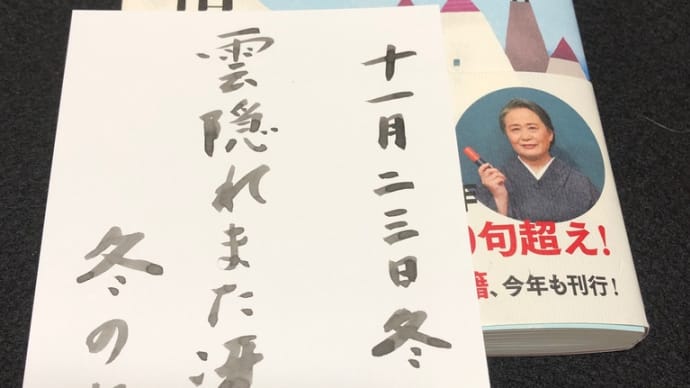 十一月二三日冬
雲隠れまた
冬の
句超え!
籍、今年も刊行!